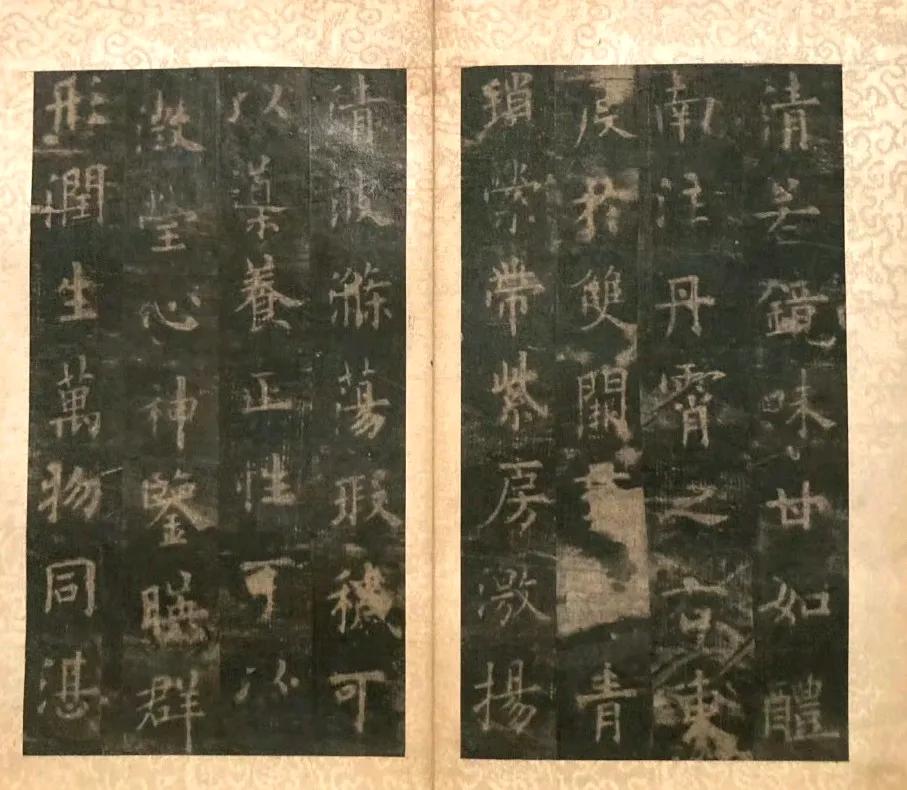 清若鏡味甘如醴
南注丹霄之右東
度於雙闕青
瑣縈帶紫房激揚
清波滌蕩瑕穢可
以導養正性可以
澂瑩心神鑒暎群
形潤生萬物同湛